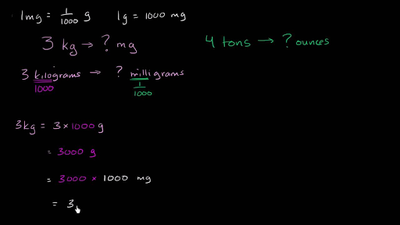 1mg = 1/1000 g 1g = 1000 mg
3 kg → ? mg 4 tons → ? ounces
3 kilograms → ? milligrams
1000 1/1000
3kg = 3 × 1000 g
= 3000 g
= 3000 × 1000 mg
= 3,